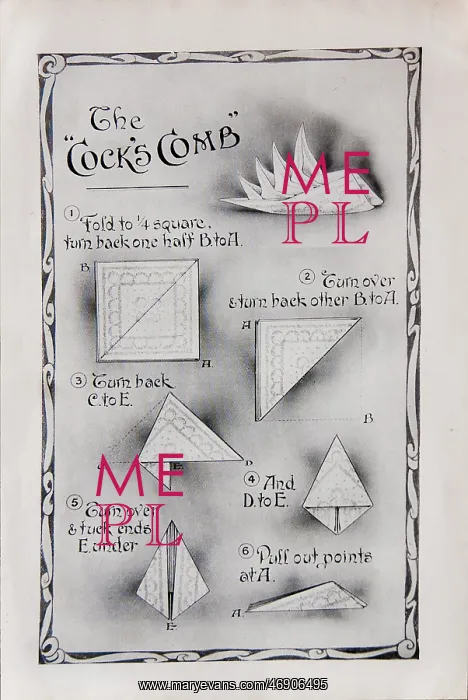 The
"COCK'S COMB"
① Fold to ¼ square,
turn back one half B to A.
B
A.
② Turn over
& turn back other B. to A.
A
B
③ Turn back
C. to E.
E.
D
④ And
D. to E.
⑤ Turn over
& tuck ends
E. under
E.
⑥ Pull out points
at A.
A.
ME
PL
ME
PL
www.maryevans.com/46906495